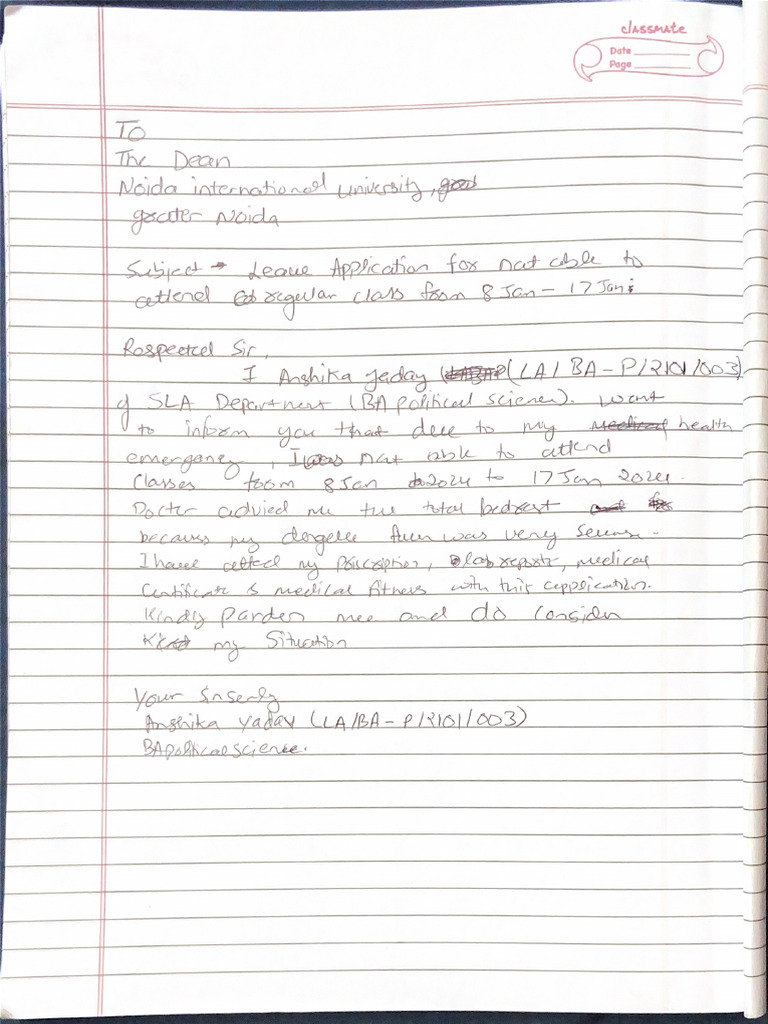 classmate
Date
Page
To
The Dean
Noida international university,
greater Noida
Subject → Leave Application for not able to
attend regular class from 8 Jan – 17 Jan
Respected Sir,
I Anshika Yadav (LA/BA-P/2101/003)
of SLA Department (BA political science). want
to inform you that due to my health
emergancy, I not able to attend
classes from 8 Jan 2024 to 17 Jan 2024.
Doctor advied me the total bedrest
because my dengue was very
I have my Priscription, lab reports, medical
Certificate & medical fitness with this application.
Kindly Parden mee and do consider
my Situation
Your Sinserly
Anshika Yadav (LA/BA-P/2101/003)
BA political science.